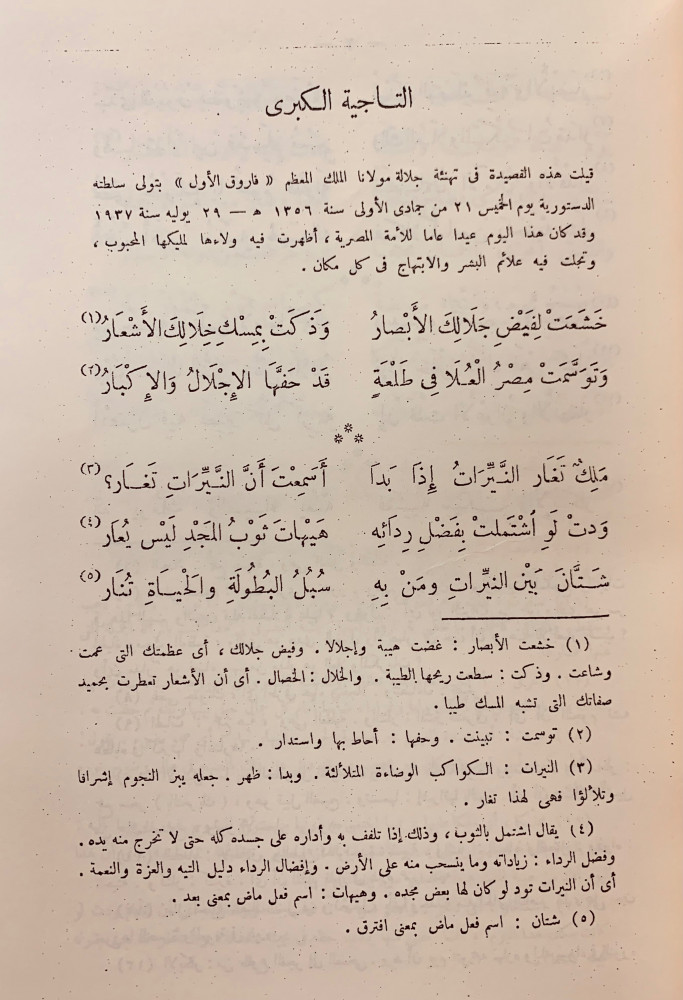 التاجية الكبرى
قيلت هذه القصيدة فى تهنئة جلالة مولانا الملك المعظم « فاروق الأول » بتولى سلطته
الدستورية يوم الخميس ٢١ من جمادى الأولى سنة ١٣٥٦ ه — ٢٩ يوليه سنة ١٩٣٧
وقد كان هذا اليوم عيدا عاما للأمة المصرية ، أظهرت فيه ولاءها لمليكها المحبوب ،
وتجلت فيه علائم البشر والابتهاج فى كل مكان .
خَشَعَتْ لِفَيْضِ جَلَالِكَ الأَبْصارُ وَذَكَتْ بِمِسْكِ خِلَالِكَ الأَشْعَارُ (١)
وَتَوَسَّمَتْ مِصْرُ الْعُلَا فِى طَلْعَةٍ قَدْ حَفَّهَا الإِجْلَالُ وَالإِكْبَارُ (٢)
مَلِكٌ تَغَار النَّيِّرَاتُ إِذَا بَدَا أَسَمِعْتَ أَنَّ النَّيِّرَاتِ تَغَار؟ (٣)
وَدتْ لَوِ اشْتَملتْ بِفَضْلِ رِدَائِه هَيْهاتَ ثَوْبُ المَجْدِ لَيْس يُعَار (٤)
شَتَّانَ بَيْن النيِّراتِ ومَنْ بِهِ سُبُلُ البُطُولَةِ والْحيَاةِ تُنَار (٥)
(١) خشعت الأبصار : غضت هيبة وإجلالا . وفيض جلالك ، أى عظمتك التى عمت
وشاعت . وذكت : سطعت ريحها الطيبة . والخلال : الخصال . أى أن الأشعار تعطرت بحميد
صفاتك التى تشبه المسك طيبا .
(٢) توسمت : تبينت . وحفها : أحاط بها واستدار .
(٣) النيرات : الكواكب الوضاءة المتلألئة . وبدا : ظهر . جعله يبز النجوم إشراقا
وتلألؤا فهى لهذا تغار .
(٤) يقال اشتمل بالثوب ، وذلك إذا تلفف به وأداره على جسده كله حتى لا تخرج منه يده .
وفضل الرداء : زياداته وما ينسحب منه على الأرض . وإفضال الرداء دليل التيه والعزة والنعمة .
أى أن النيرات تود لو كان لها بعض مجده . وهيهات : اسم فعل ماض بمعنى بعد .
(٥) شتان : اسم فعل ماض بمعنى افترق .